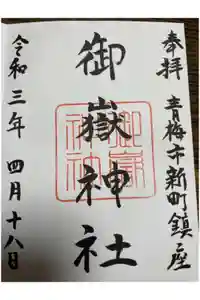 奉拝 青梅市新町鎮座
御嶽神社
令和三年 四月十八日